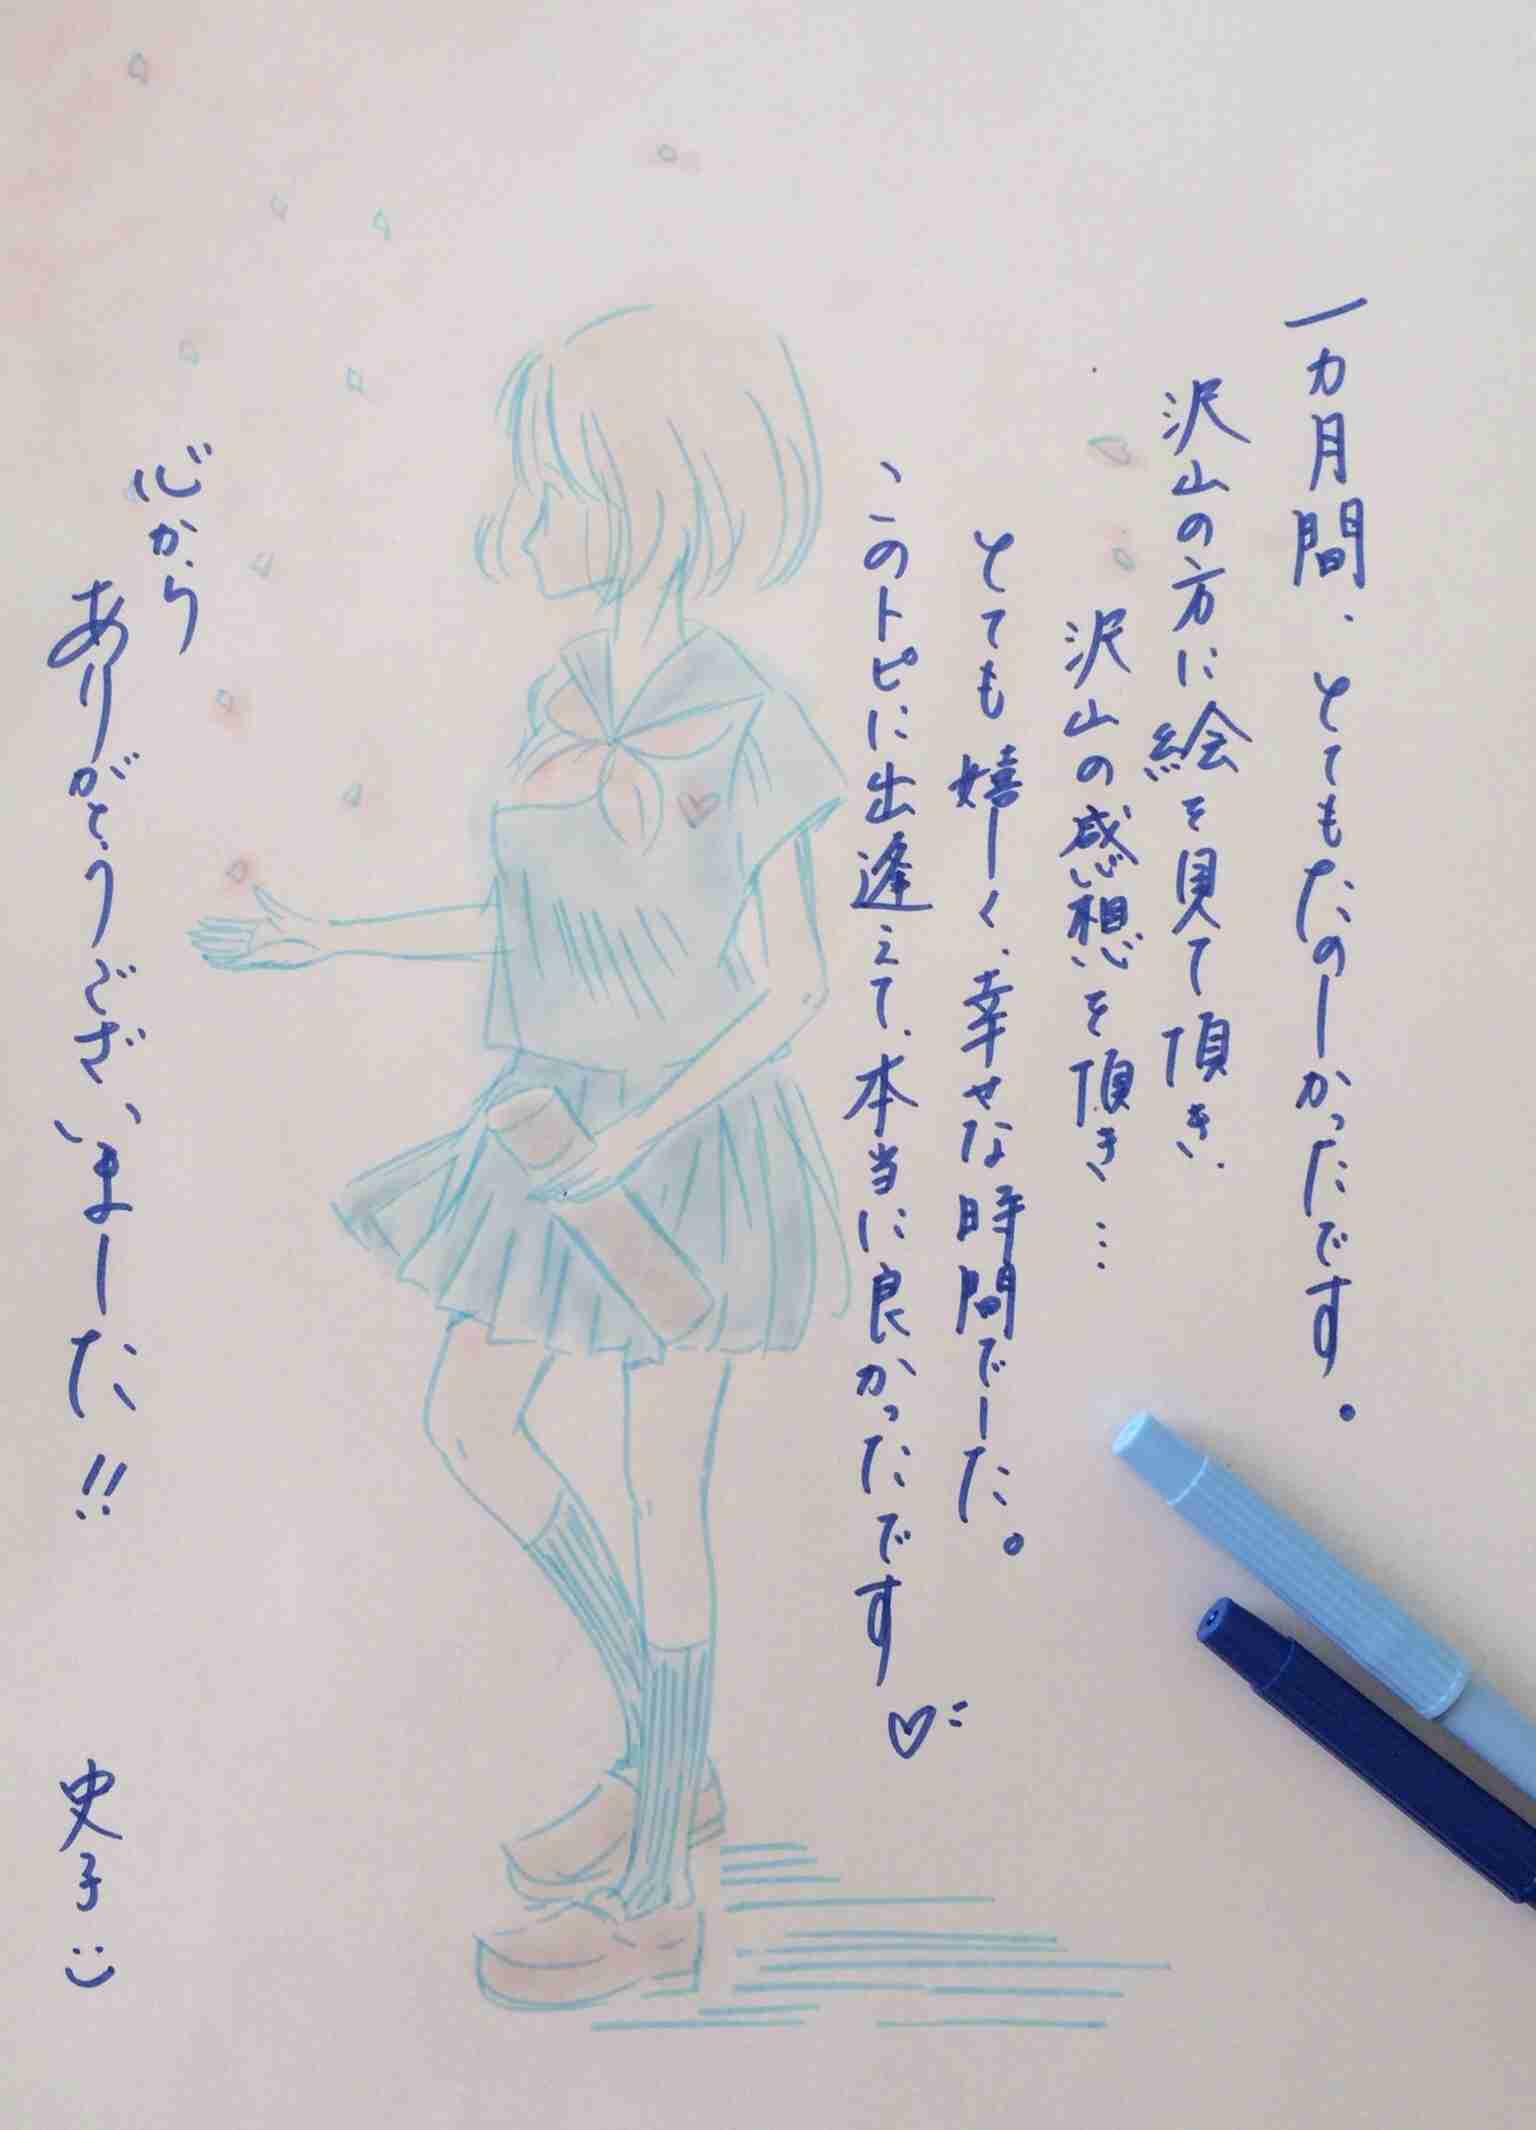 一カ月間、とてもたのしかったです。
沢山の方に絵を見て頂き、
沢山の感想を頂き…
とても嬉しく、幸せな時間でした。
このトピに出逢えて、本当に良かったです♡
心から
ありがとうございました!!
史子